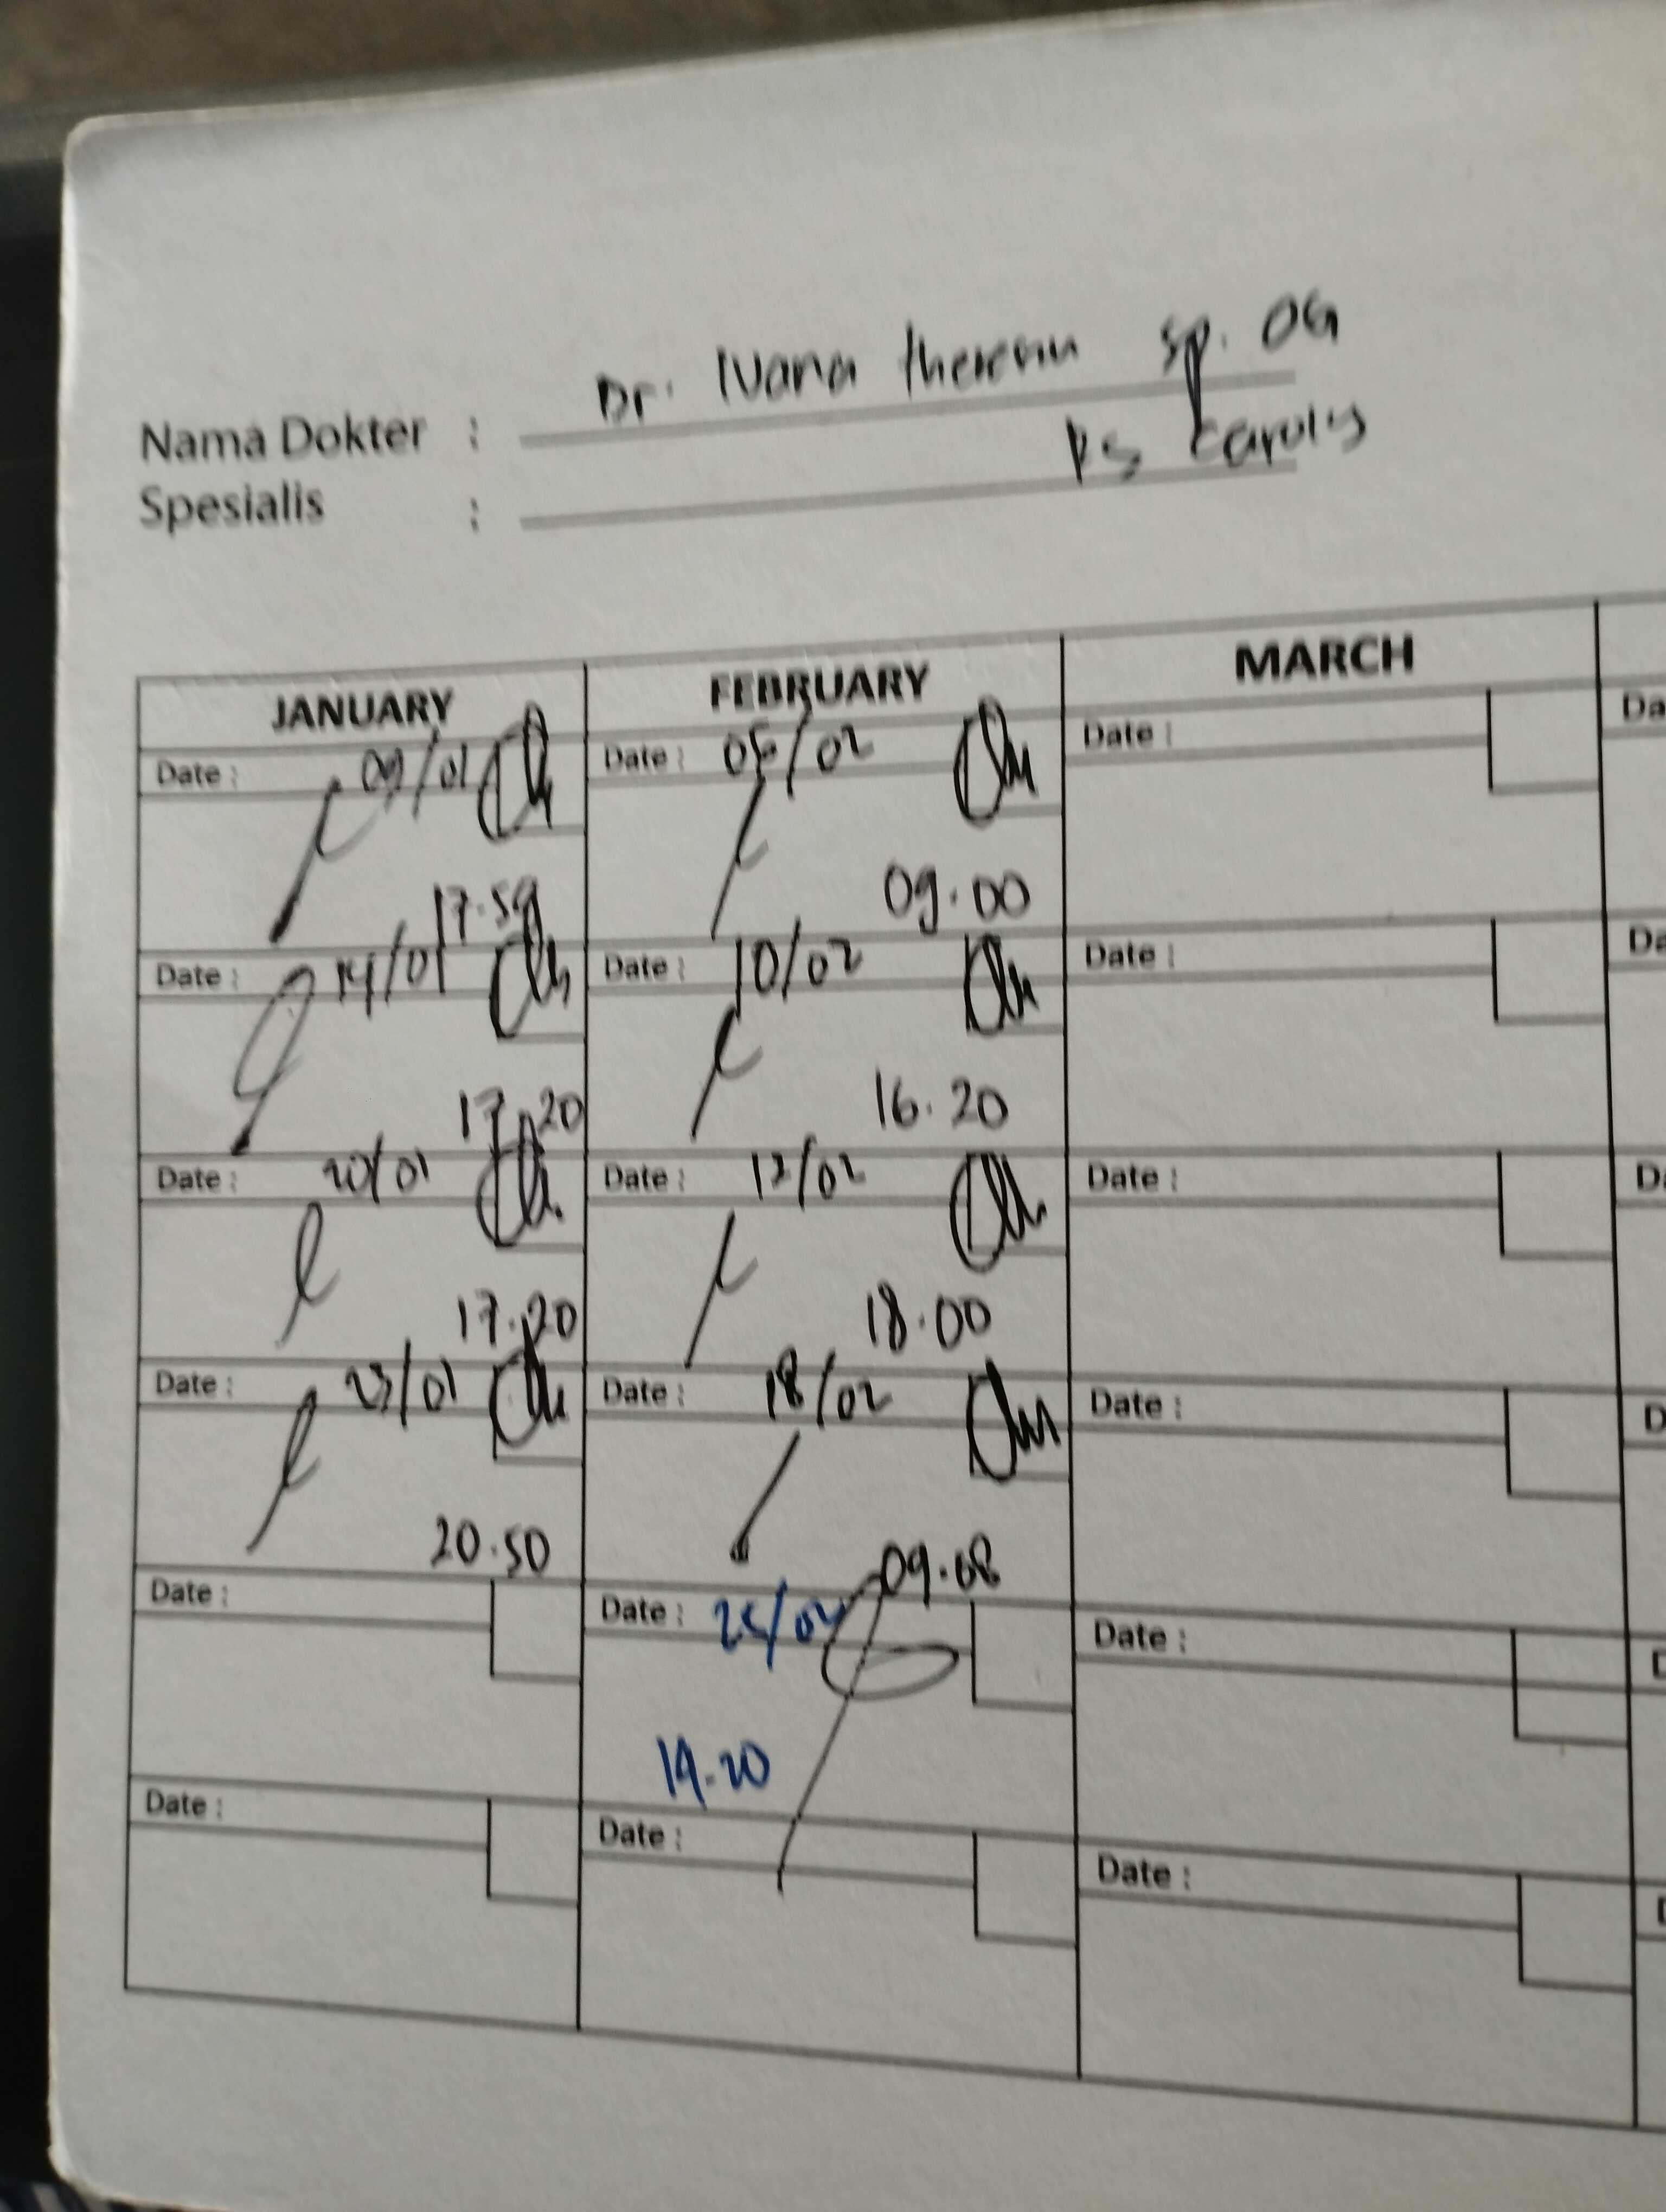 Nama Dokter : Dr. Ivana theresia sp. OG
Spesialis : RS Carolus
JANUARY FEBRUARY MARCH
Date : 09/01 Date : 05/02 Date : Da
17.59 09.00
Date : 14/01 Date : 10/02 Date : Da
17.20 16.20
Date : 20/01 Date : 12/02 Date : Da
17.20 18.00
Date : 23/01 Date : 18/02 Date : D
20.50 09.08
Date : Date : 25/02 Date : D
19.20
Date : Date : Date : D